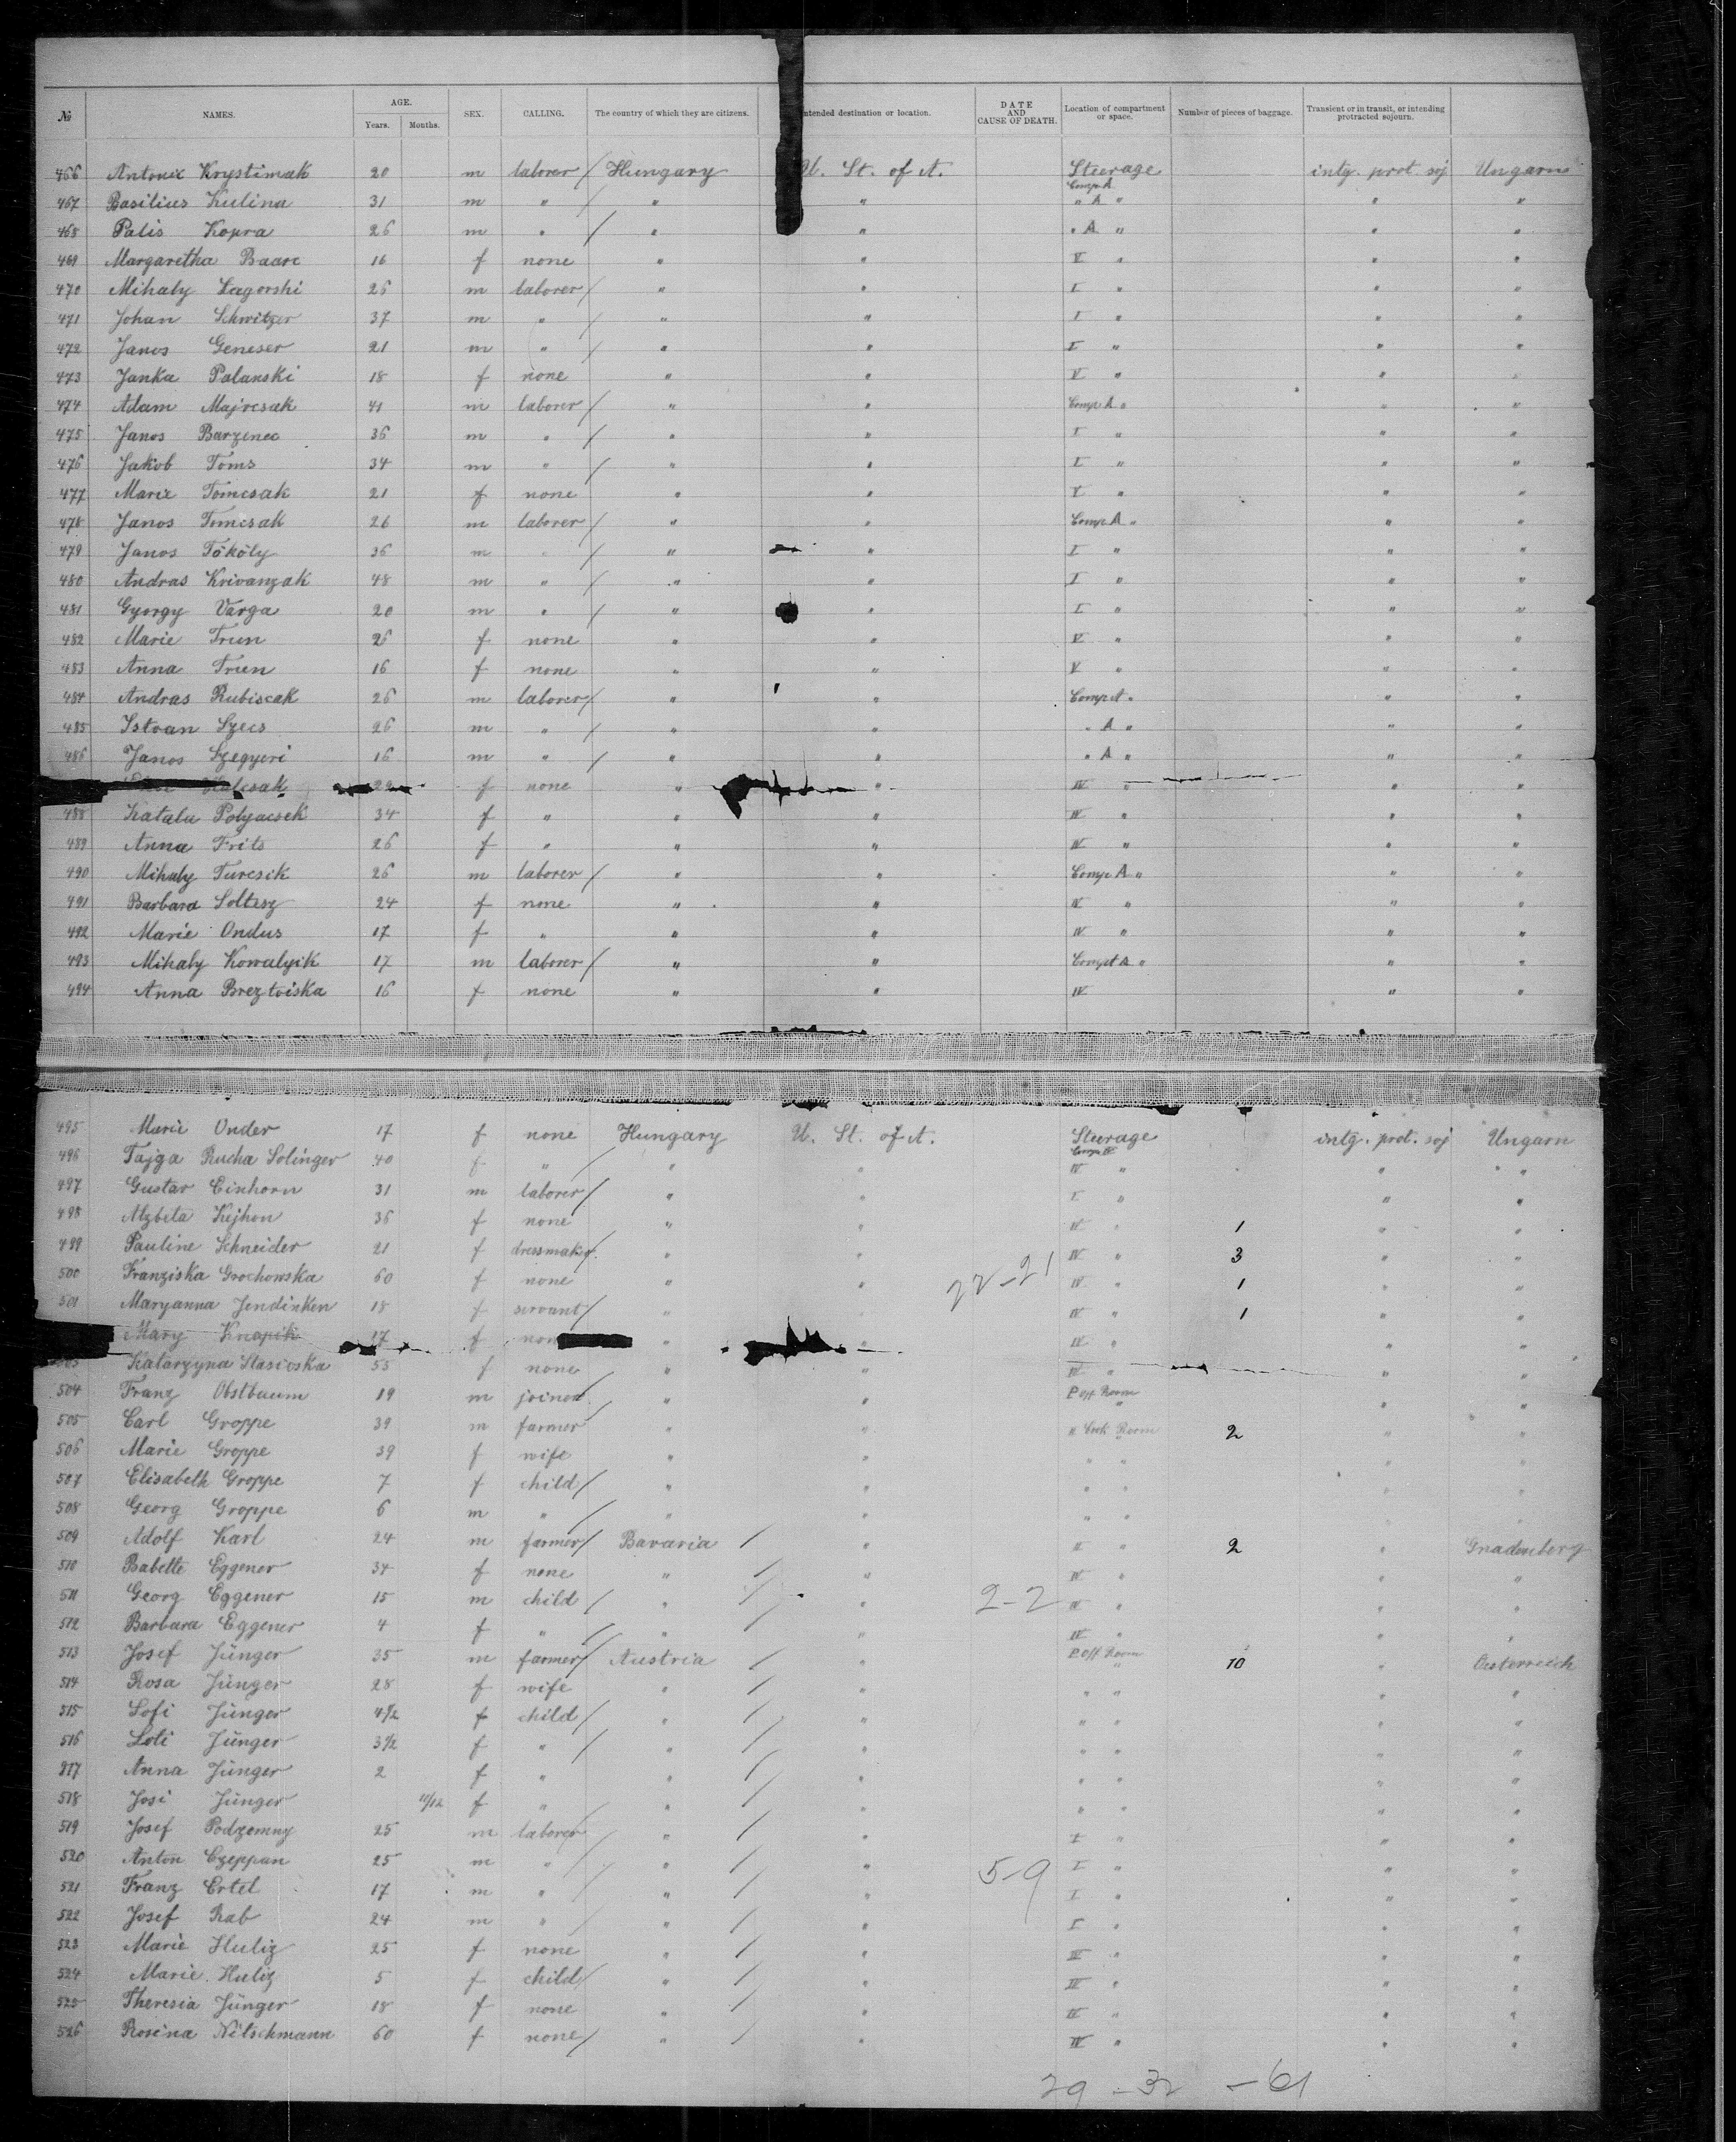 № NAMES. AGE. Years. Months. SEX. CALLING. The country of which they are citizens. Intended destination or location. DATE AND CAUSE OF DEATH. Location of compartment or space. Number of pieces of baggage. Transient or in transit, or intending protracted sojourn.
466 Antonie Krystimak 20 m laborer / Hungary U. St. of A. Steerage Comp. A. intg. prot. soj Ungarn
467 Basilius Kulina 31 m " / " " " A " " "
468 Palis Kopra 26 m " / " " " A " " "
469 Margaretha Baarc 16 f none " " V " " "
470 Mihaly Lagorshi 26 m laborer / " " I " " "
471 Johan Schwitzer 37 m " / " " I " " "
472 Janos Geneser 21 m " / " " I " " "
473 Janka Palanski 18 f none " " V " " "
474 Adam Majrcsak 41 m laborer / " " Comp. A " " "
475 Janos Barzenec 36 m " / " " I " " "
476 Jakob Toms 34 m " / " " I " " "
477 Marie Tomcsak 21 f none " " V " " "
478 Janos Tomcsak 26 m laborer / " " Comp. A " " "
479 Janos Tököly 36 m " / " " I " " "
480 Andras Krivanzak 48 m " / " " I " " "
481 Gyorgy Varga 20 m " / " " I " " "
482 Marie Trun 26 f none " " V " " "
483 Anna Trun 16 f none " " V " " "
484 Andras Rubiscak 26 m laborer / " " Comp A " " "
485 Istvan Szecs 26 m " / " " " A " " "
486 Janos Szegyeri 16 m " / " " " A " " "
22 f none " " IV " " "
488 Katalu Polyacsek 34 f " " " IV " " "
489 Anna Frits 26 f " " " IV " " "
490 Mihaly Turcsik 26 m laborer / " " Comp A " " "
491 Barbara Soltesz 24 f none " " IV " " "
492 Marie Ondus 17 f " " " IV " " "
493 Mihaly Kowalyik 17 m laborer / " " Compt A " " "
494 Anna Breztoiska 16 f none " " IV " "
495 Marie Onder 17 f none Hungary U. St. of A. Steerage Comp IV intg. prot. soj Ungarn
496 Tajga Rucha Solinger 40 f " / " " IV " " "
497 Gustav Einhorn 31 m laborer / " " I " " "
498 Alzbeta Kejhon 36 f none " " IV " 1 " "
499 Pauline Schneider 21 f dressmaker / " " IV " 3 " "
500 Franziska Grochowska 60 f none " " 22-21 IV " 1 " "
501 Maryanna Jendinken 18 f servant / " " IV " 1 " "
Mary Knapik 17 f none " " IV " " "
Katarzyna Stasicska 55 f none " " IV " " "
504 Franz Obstbaum 19 m joiner / " " P. off Room " " "
505 Carl Groppe 39 m farmer / " " " Cook Room 2 " "
506 Marie Groppe 39 f wife " " " " " "
507 Elisabeth Groppe 7 f child / " " " " " "
508 Georg Groppe 6 m " / " " " " " "
509 Adolf Karl 24 m farmer / Bavaria / " " " 2 " Gnadenberg
510 Babette Eggener 34 f none " / " IV " " "
511 Georg Eggener 15 m child / " / " 2-2 IV " " "
512 Barbara Eggener 4 f " / " / " IV " " "
513 Josef Jünger 35 m farmer / Austria / " P. off Room " 10 " Oesterreich
514 Rosa Jünger 28 f wife " / " " " " "
515 Sofi Jünger 4½ f child / " / " " " " "
516 Loti Jünger 3½ f " / " / " " " " "
517 Anna Jünger 2 f " " / " " " " "
518 Josi Jünger 11/12 f " " / " " " " "
519 Josef Podzemny 25 m laborer / " / " I " " "
520 Anton Czeppan 25 m " / " / " 5-9 I " " "
521 Franz Ertel 17 m " / " / " I " " "
522 Josef Rab 24 m " / " / " I " " "
523 Marie Huliz 25 f none " / " IV " " "
524 Marie Huliz 5 f child / " / " IV " " "
525 Theresia Jünger 18 f none " / " IV " " "
526 Rosina Nitschmann 60 f none / " / " IV " " "
29 - 32 - 61